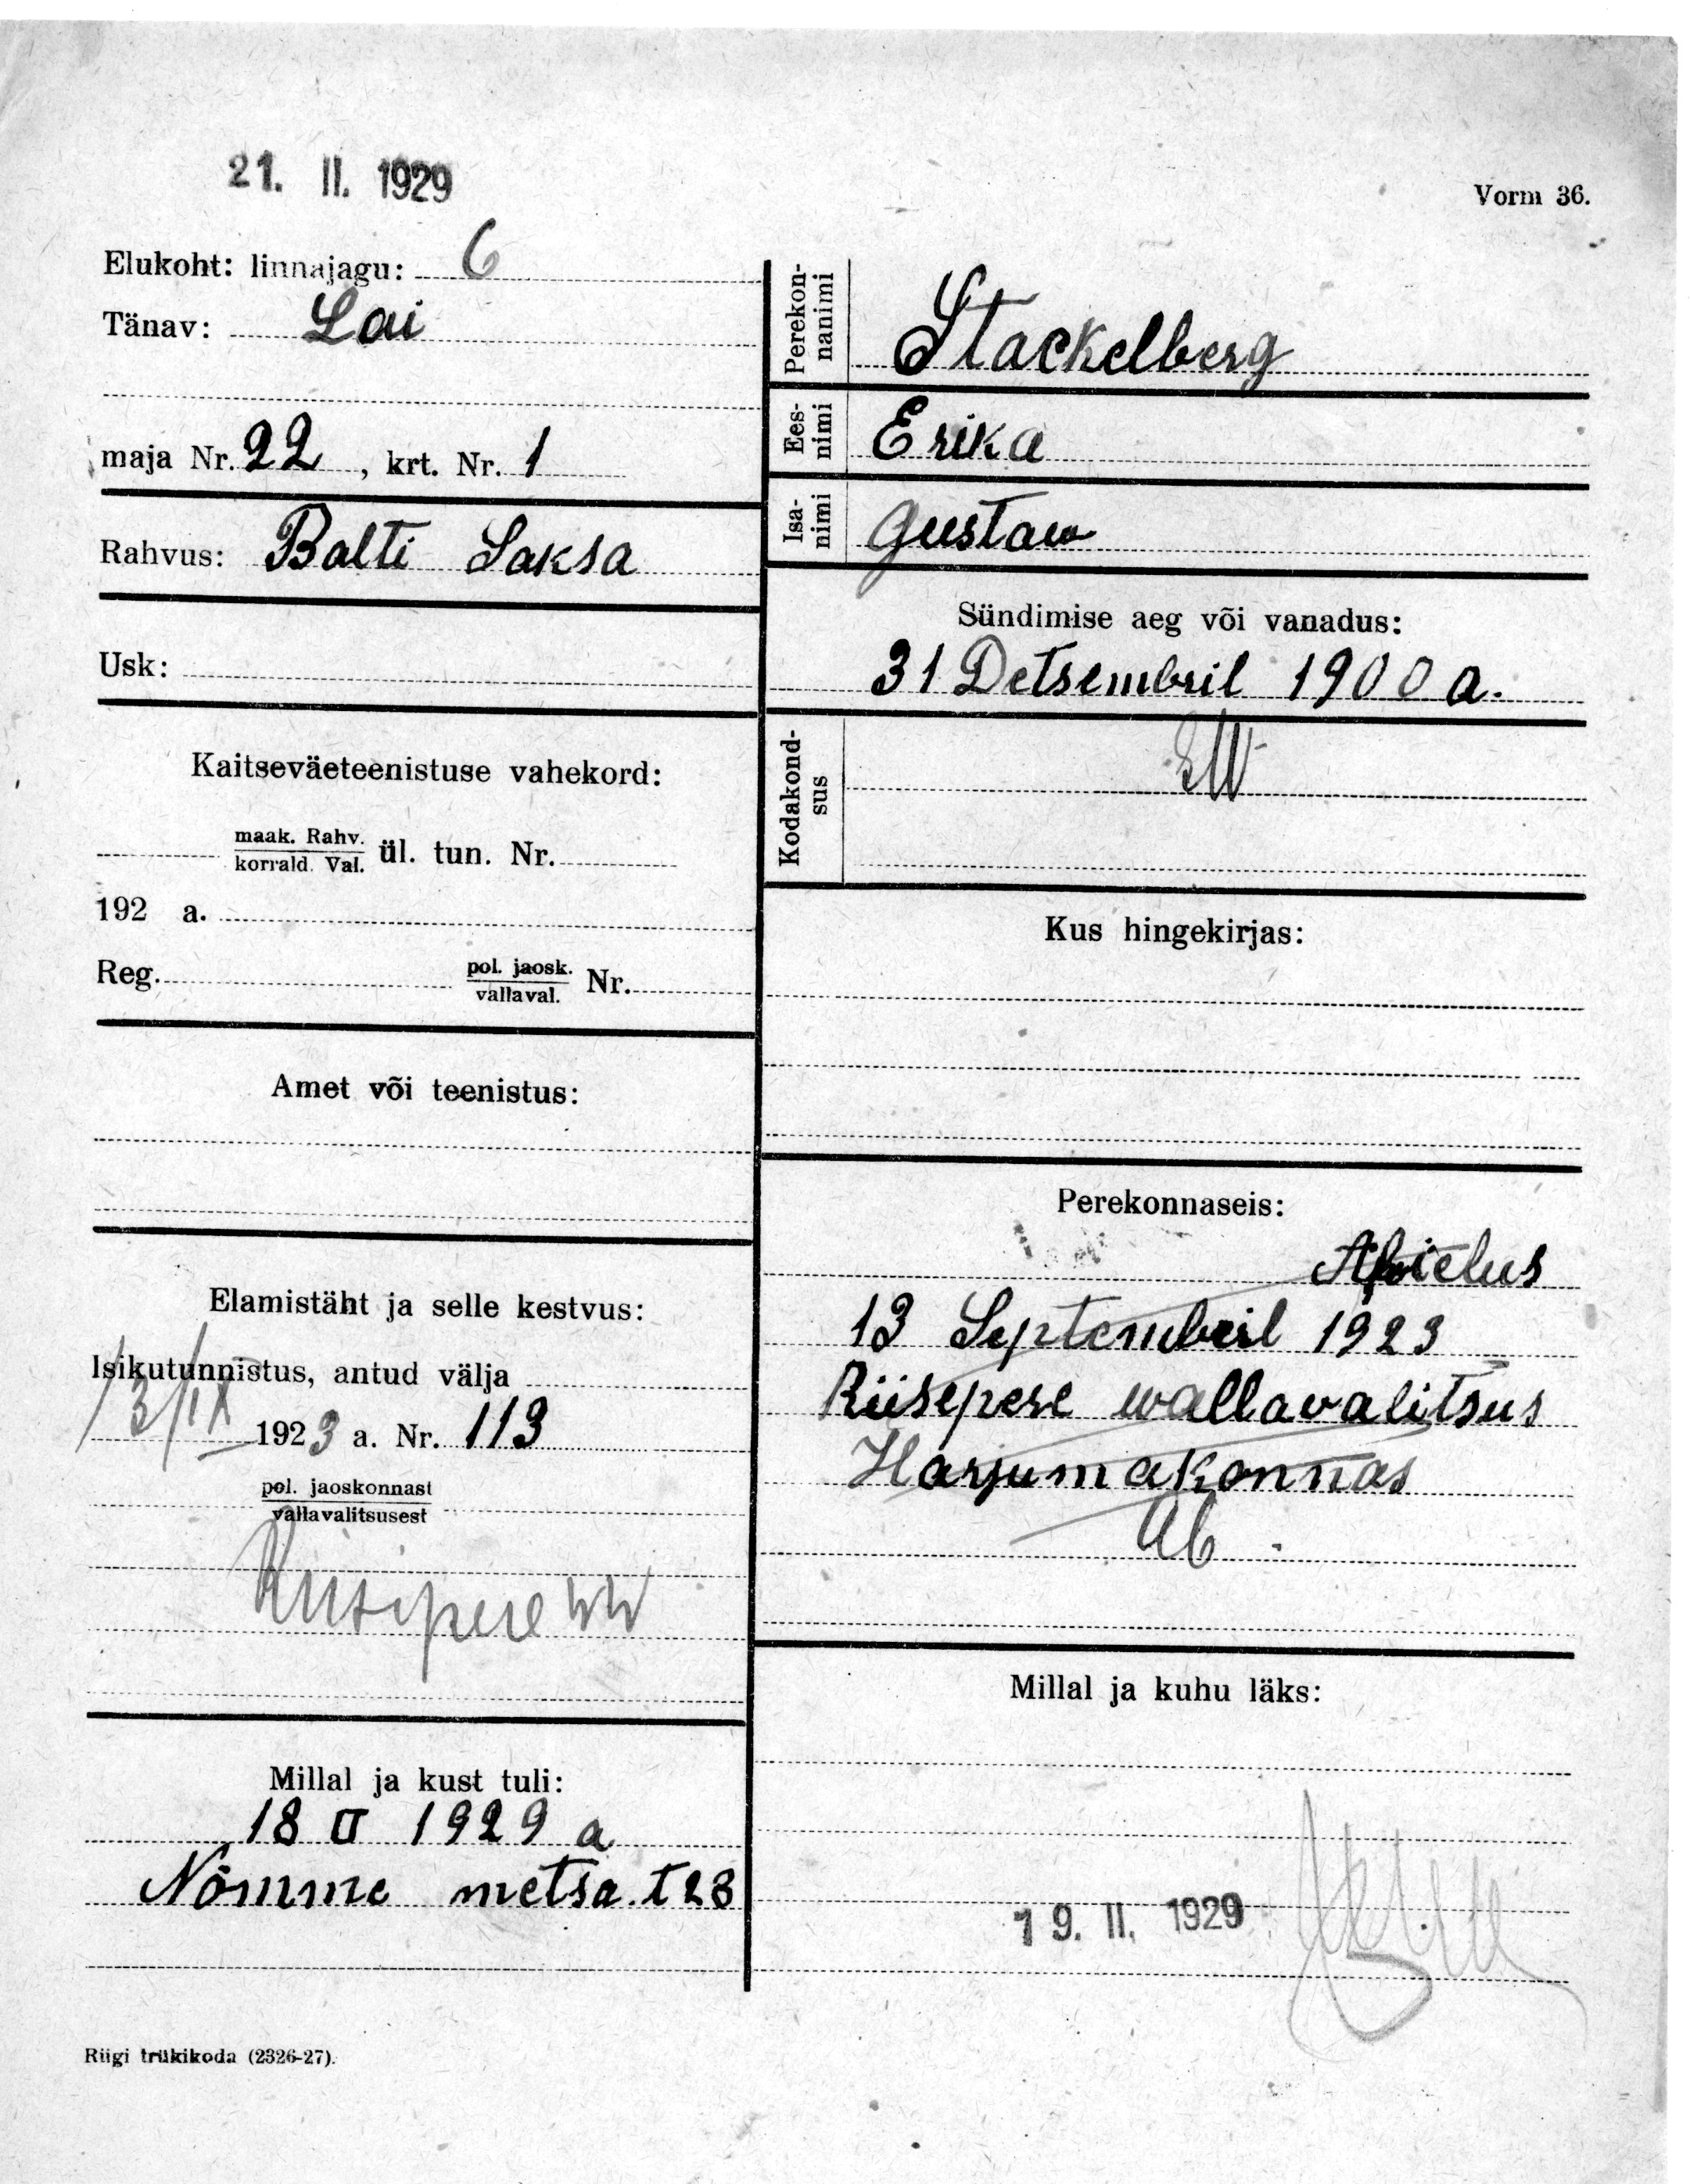 21. II. 1929
Vorm 36.
Elukoht: linnajagu: 6
Tänav: Lai
maja Nr. 22, krt. Nr. 1
Rahvus: Balti Saksa
Usk:
Kaitseväeteenistuse vahekord:
maak. Rahv.
korrald. Val. ül. tun. Nr.
192 a.
Reg. pol. jaosk.
vallaval. Nr.
Amet või teenistus:
Elamistäht ja selle kestvus:
Isikutunnistus, antud välja
13/IX 1923 a. Nr. 113
pol. jaoskonnast
vallavalitsusest
Riisipere vv
Millal ja kust tuli:
18 II 1929 a
Nõmme metsa t 28
Perekon-
nanimi
Stackelberg
Ees-
nimi
Erika
Isa-
nimi
Gustaw
Sündimise aeg või vanadus:
31 Detsembril 1900 a.
Kodakond-
sus
EW
Kus hingekirjas:
Perekonnaseis:
Abielus
13 Septembril 1923
Riisepere wallavalitsus
Harjumakonnas
Ab.
Millal ja kuhu läks:
19. II. 1929
Riigi trükikoda (2326-27).